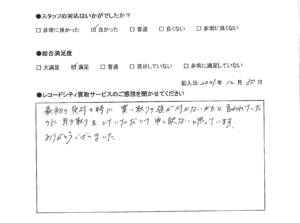 ●スタッフの対応はいかがでしたか?
□非常に良かった ☑良かった □普通 □良くない □非常に良くない
●総合満足度
□大満足 ☑満足 □普通 □満足していない □非常に満足していない
記入日:2021年12月30日
●レコードシティ買取サービスのご感想を聞かせてください
最初の受付の時に買い取りの値が付かないかもと言われていた
のに引き取りをしていただいて申し訳ないと思っています。
ありがとうございました。